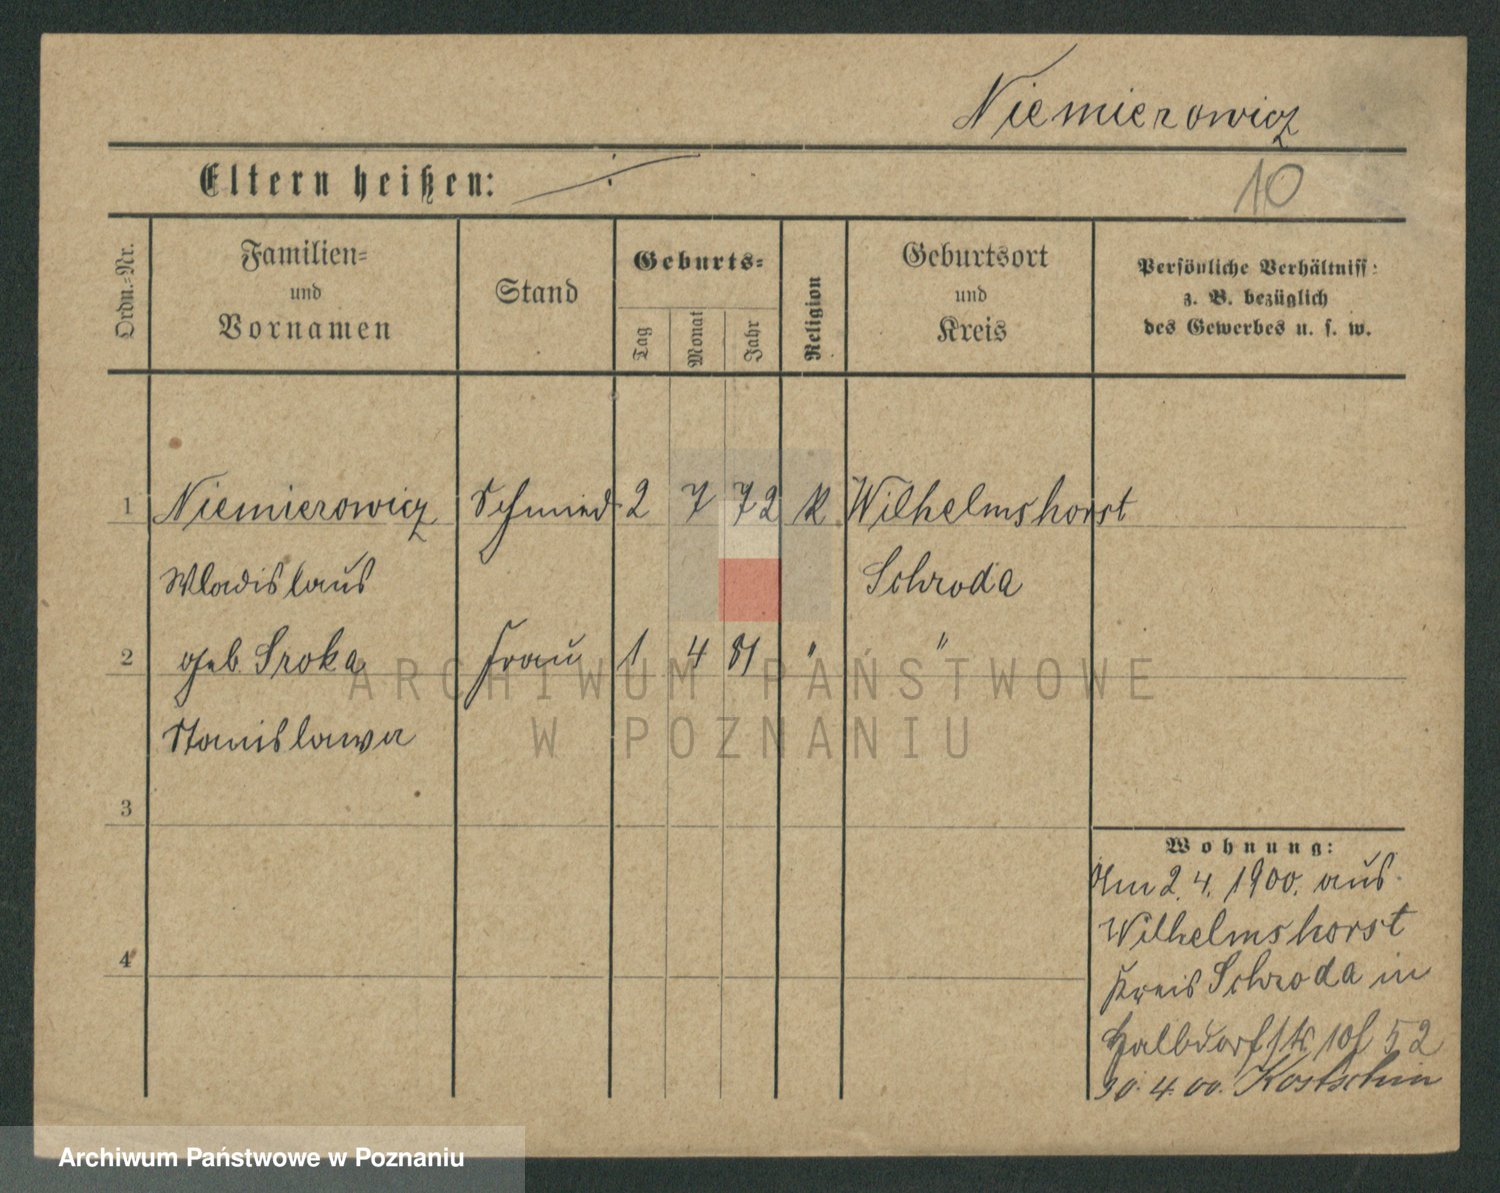 Niemierowicz
Eltern heißen:
10
Ordn.-Nr.
Familien-
und
Vornamen
Stand
Geburts-
Tag
Monat
Jahr
Religion
Geburtsort
und
Kreis
Persönliche Verhältniss:
z. B. bezüglich
des Gewerbes u. s. w.
1 Niemierowicz Schmied 2 7 72 k Wilhelmshorst
Wladislaus Schroda
2 geb. Sroka Frau 1 4 81 " "
Stanislawa
3
4
Wohnung:
Am 2.4.1900. aus
Wilhelmshorst
Kreis Schroda in
Halbdorfstr 10 52
30.4.00. Kostschin
ARCHIWUM PAŃSTWOWE
W POZNANIU
Archiwum Państwowe w Poznaniu